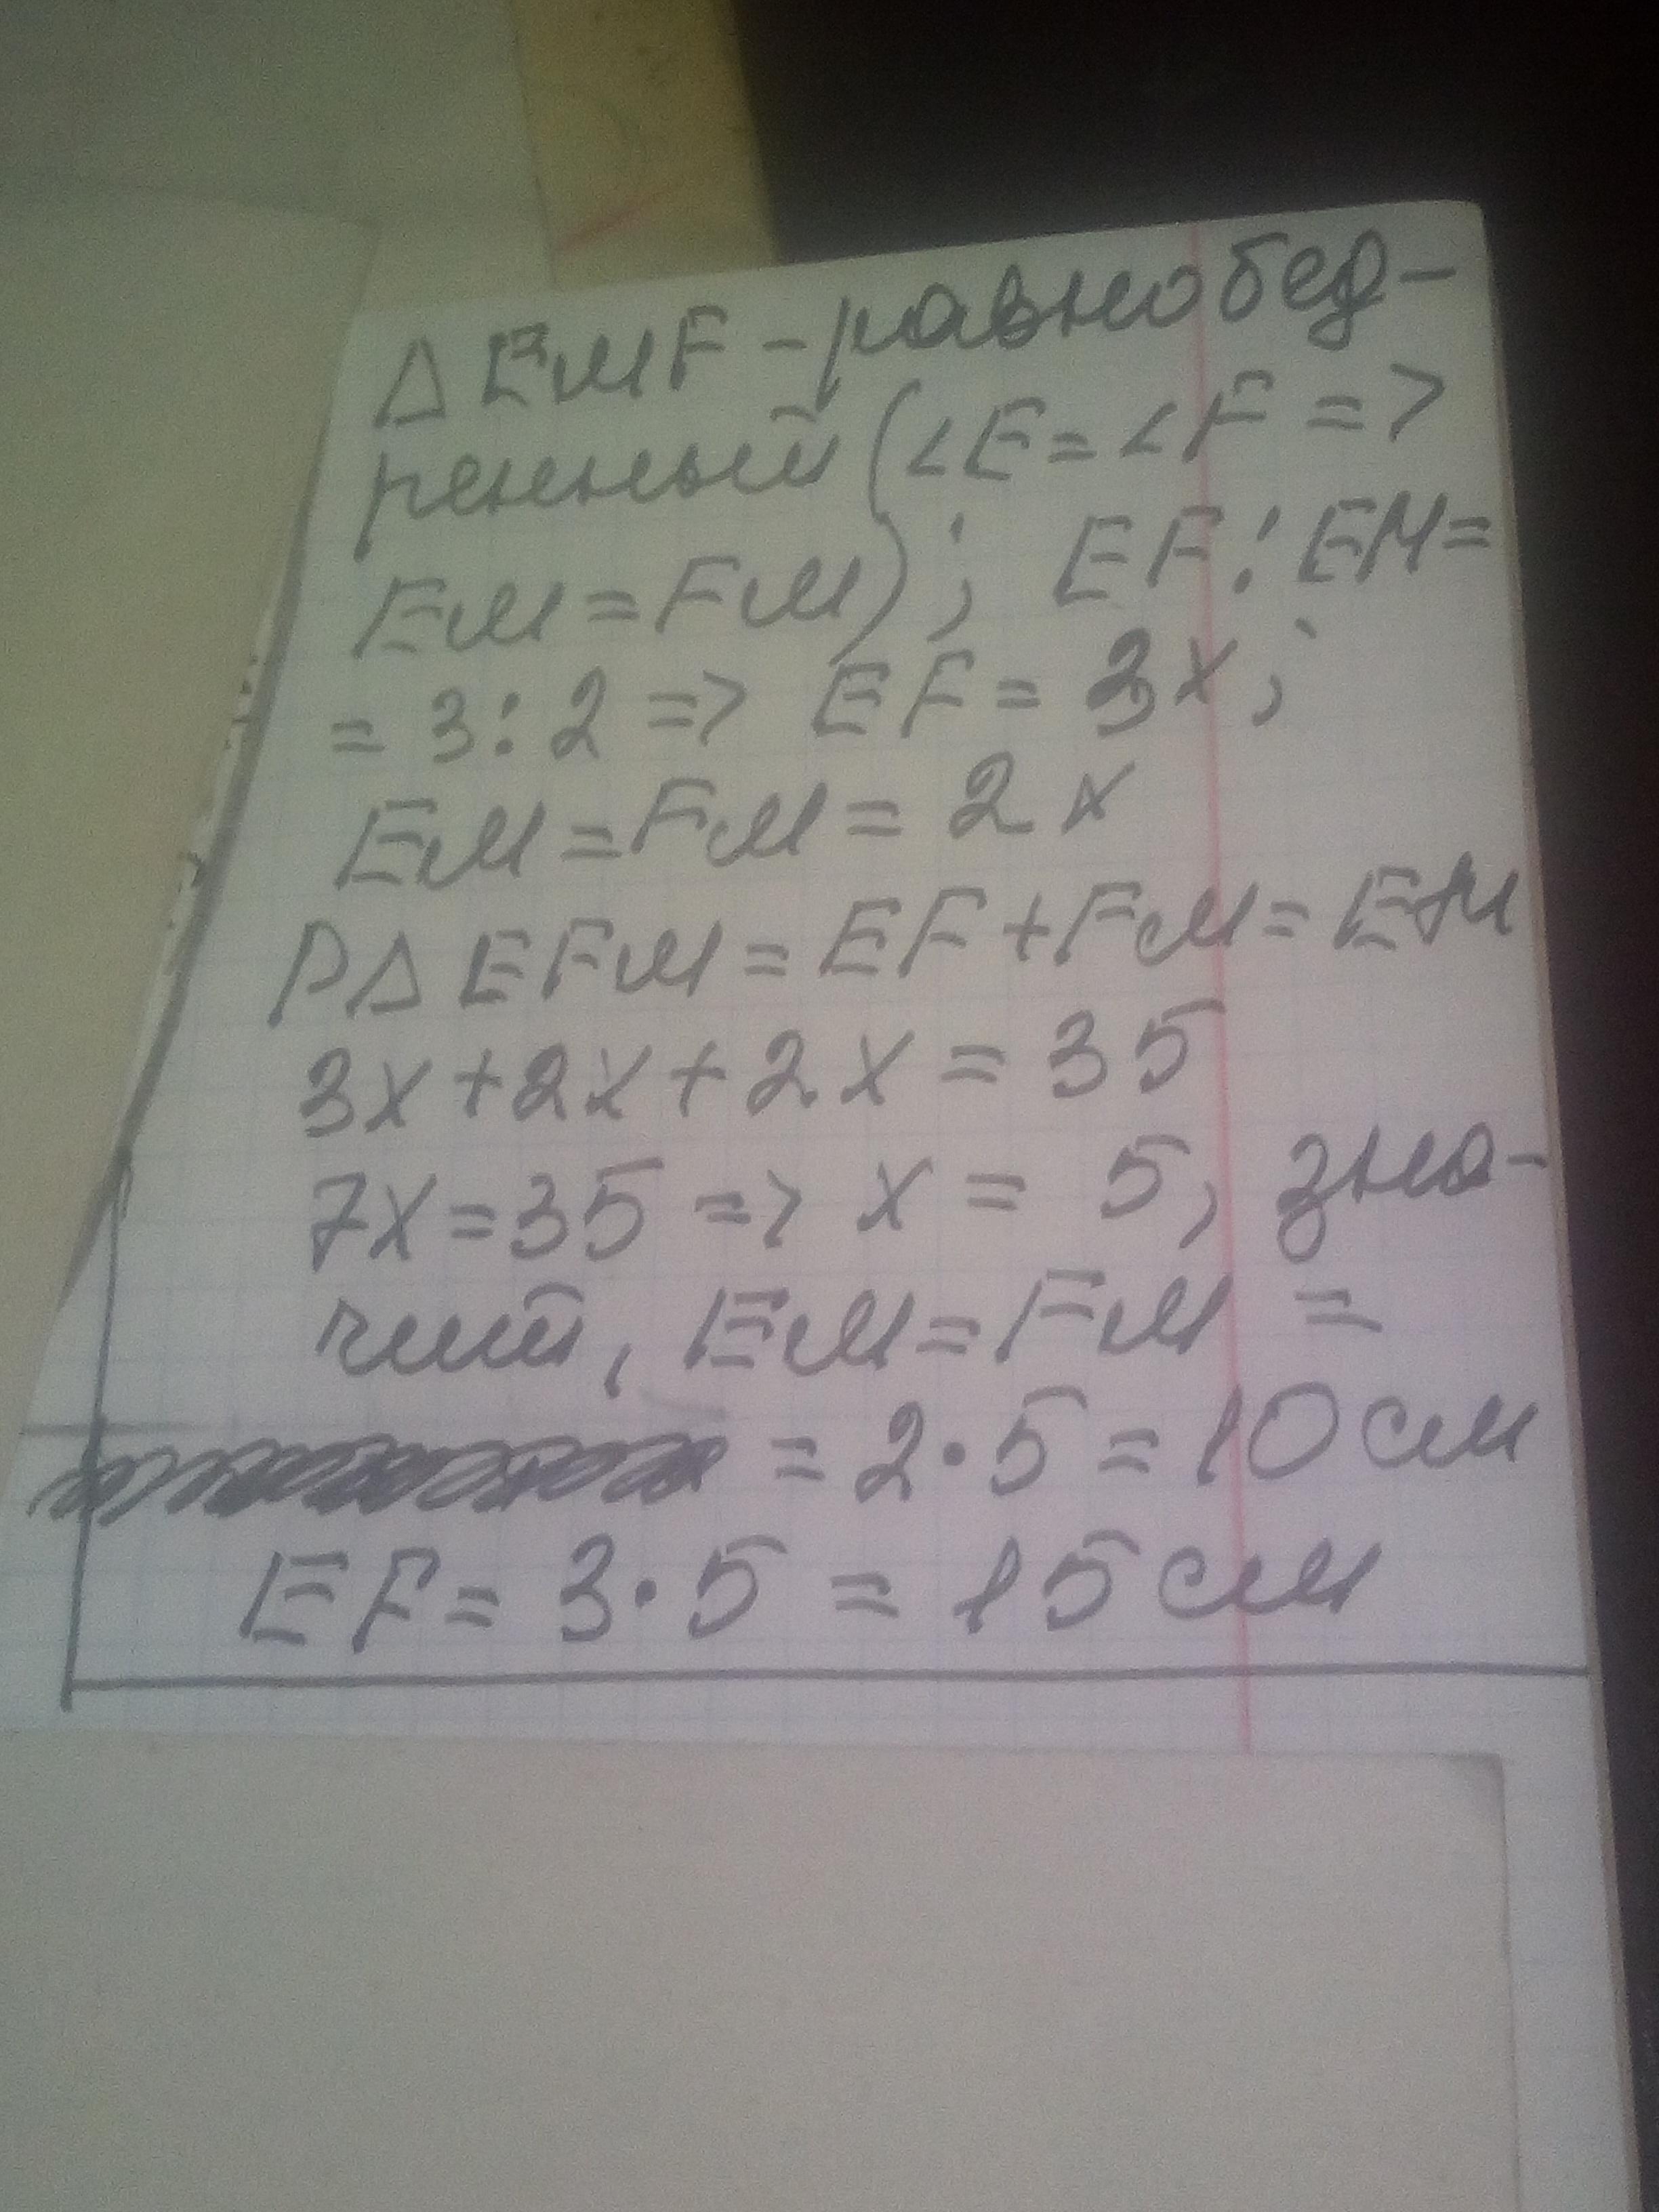 Δ EMF - равнобед-
ренный (∠E = ∠F =>
EM = FM); EF : EM =
= 3 : 2 => EF = 3x;
EM = FM = 2x
PΔ EFM = EF + FM = EM
3x + 2x + 2x = 35
7x = 35 => x = 5, зна-
чит, EM = FM =
= 2 · 5 = 10 см
EF = 3 · 5 = 15 см